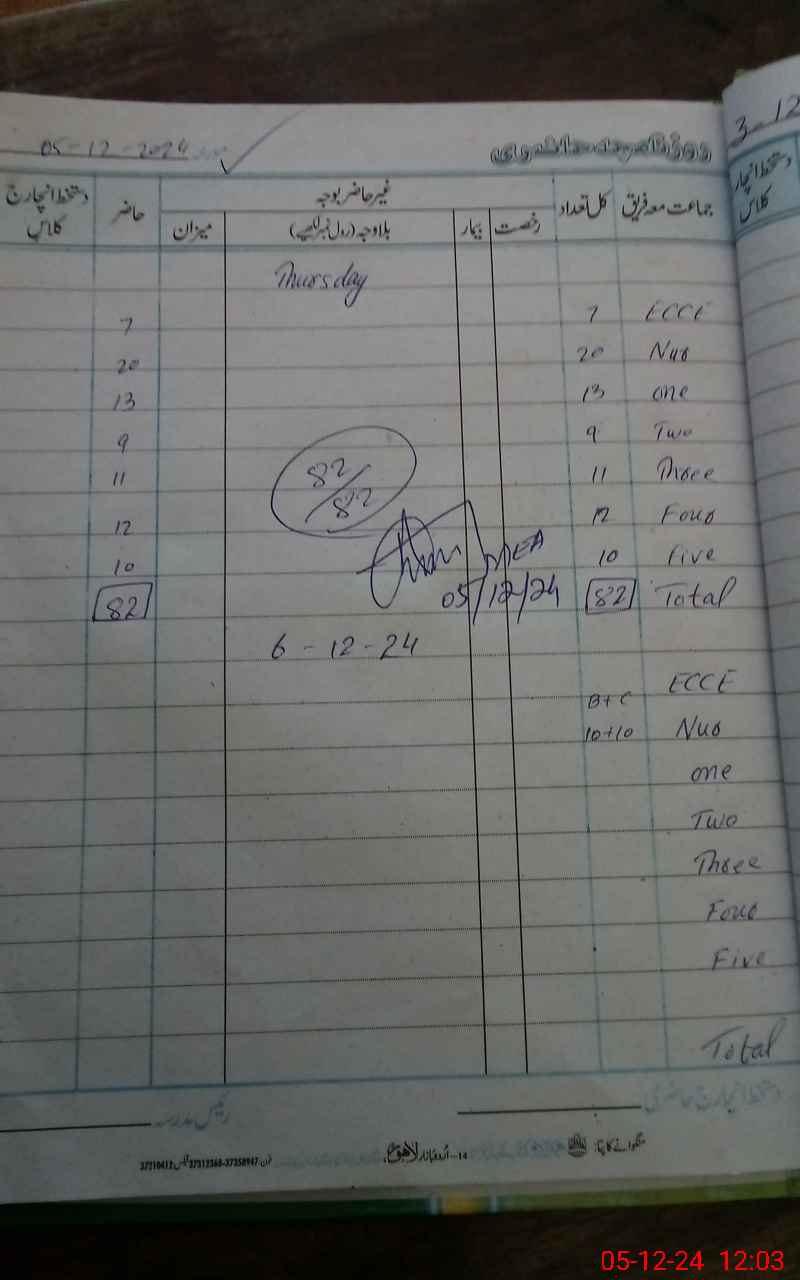 05-12-2024
3-12
دستخط انچارج کلاس
حاضر
غیر حاضر بوجہ
کل تعداد
جماعت معہ فریق
میزان
بلاوجہ (رول نمبر لکھیے)
بیمار
رخصت
Thursday
7 7 ECCE
20 20 Nur
13 13 one
9 9 Two
11 11 Three
12 12 Four
10 10 Five
82 82 Total
82/82
MEA
05/12/24
6-12-24
ECCE
B+C
10+10 Nur
one
Two
Three
Four
Five
Total
دستخط انچارج حاضری
رئیس مدرسہ
منگوانے کا پتا:
14-اُردو بازار لاہور
05-12-24 12:03